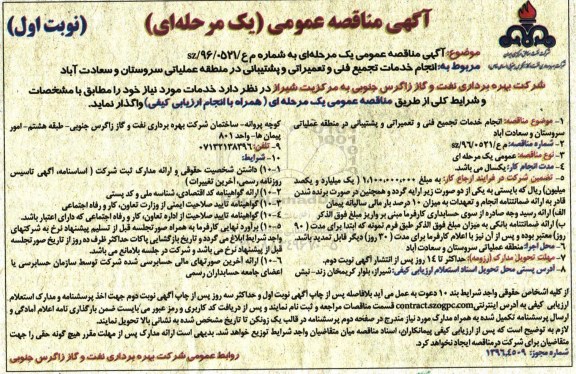 آگهی مناقصه عمومی (یک مرحله‌ای)
(نوبت اول)
موضوع: آگهی مناقصه عمومی یک مرحله‌ای به شماره م ع/sz/۹۶/۰۵۲۱
مربوط به: انجام خدمات تجمیع فنی و تعمیراتی و پشتیبانی در منطقه عملیاتی سروستان و سعادت آباد
شرکت بهره برداری نفت و گاز زاگرس جنوبی به مرکزیت شیراز در نظر دارد خدمات مورد نیاز خود را مطابق با مشخصات
و شرایط کلی از طریق مناقصه عمومی یک مرحله ای (همراه با انجام ارزیابی کیفی) واگذار نماید.
۱- موضوع مناقصه: انجام خدمات تجمیع فنی و تعمیراتی و پشتیبانی در منطقه عملیاتی
سروستان و سعادت آباد
۲- شماره مناقصه: م ع/sz/۹۶/۰۵۲۱
۳- نوع مناقصه: عمومی یک مرحله ای
۴- مدت انجام کار: یکسال می باشد.
۵- تضمین شرکت در فرایند ارجاع کار: به مبلغ ۱,۱۰۰,۰۰۰,۰۰۰ (یک میلیارد و یکصد
میلیون) ریال که بایستی به یکی از دو صورت زیر ارایه گردد و همچنین در صورت برنده شدن
قادر به ارائه ضمانتنامه انجام و تعهدات به میزان ۱۰ درصد بار مالی سالیانه پیمان
الف) ارائه رسید وجه صادره از سوی حسابداری کارفرما مبنی بر واریز مبلغ فوق الذکر
ب) ارائه ضمانتنامه بانکی به میزان مبلغ فوق الذکر طبق فرم نمونه که ابتدا برای مدت (۹۰
روز) معتبر بوده و پس از آن نیز با اعلام کارفرما برای مدت (۳۰ روز) دیگر قابل تمدید باشد.
۶- محل اجرا: منطقه عملیاتی سروستان و سعادت آباد
۷- مهلت تحویل مدارک (رزومه): حداکثر تا ۱۴ روز پس از انتشار آگهی نوبت دوم.
۸- آدرس پستی محل تحویل اسناد استعلام ارزیابی کیفی: شیراز، بلوار کریمخان زند- نبش
کوچه پروانه- ساختمان شرکت بهره برداری نفت و گاز زاگرس جنوبی- طبقه هشتم- امور
پیمان ها- واحد ۸۰۱
۹- تلفن: ۰۷۱۳۲۱۳۸۳۹۶
۱۰- شرایط:
۱-۱۰) داشتن شخصیت حقوقی و ارائه مدارک ثبت شرکت (اساسنامه، آگهی تاسیس
روزنامه رسمی، آخرین تغییرات)
۲-۱۰) ارائه گواهینامه کد اقتصادی، شناسه ملی و کد پستی
۳-۱۰) گواهینامه تایید صلاحیت ایمنی از وزارت تعاون، کار و رفاه اجتماعی
۴-۱۰) گواهینامه تایید صلاحیت از اداره تعاون، کار و رفاه اجتماعی که دارای اعتبار باشد.
۵-۱۰) برآورد نهایی کارفرما به همراه صورتجلسه قبل از تسلیم پیشنهاد نرخ به شرکتهای
واجد شرایط ابلاغ می گردد و تاریخ بازگشایی پاکات حداکثر ظرف ده روز از تاریخ صورتجلسه
قبل از پیشنهاد نرخ می باشد و شرکت در جلسه بلامانع می باشد.
۶-۱۰) ارائه آخرین صورتهای مالی حسابرسی شده شرکت توسط سازمان حسابرسی یا
اعضای جامعه حسابداران رسمی
از کلیه اشخاص حقوقی واجد شرایط بند ۱۰ دعوت به عمل می آید بلافاصله پس از چاپ آگهی نوبت اول و حداکثر سه روز پس از چاپ آگهی نوبت دوم جهت اخذ پرسشنامه و مدارک استعلام
ارزیابی کیفی به آدرس اینترنتی contract.szogpc.com قسمت مناقصات مراجعه و ثبت نام نمایند و پس از دریافت کد کاربری و رمز عبور می بایست ضمن بارگذاری نامه اعلام آمادگی و
ارسال پرسشنامه تکمیل شده به همراه مدارک مورد نیاز مندرج در صفحه دوم پرسشنامه در قالب یک زونکن تا تاریخ مشخص شده به نشانی بالا تحویل نمایند.
لازم به توضیح است که پس از ارزیابی کیفی پیمانکاران، اسناد مناقصه میان متقاضیان واجد شرایط توزیع خواهد شد. بدیهی است ارائه مدارک پس از مهلت مقرر هیچ گونه حقی را جهت
متقاضیان برای شرکت در مناقصه ایجاد نخواهد کرد.
شماره مجوز: ۱۳۹۶.۴۵۰۹
روابط عمومی شرکت بهره برداری نفت و گاز زاگرس جنوبی